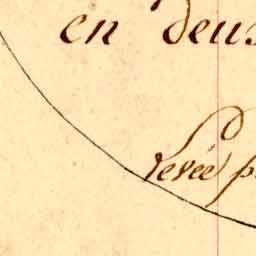 en deus
levée p